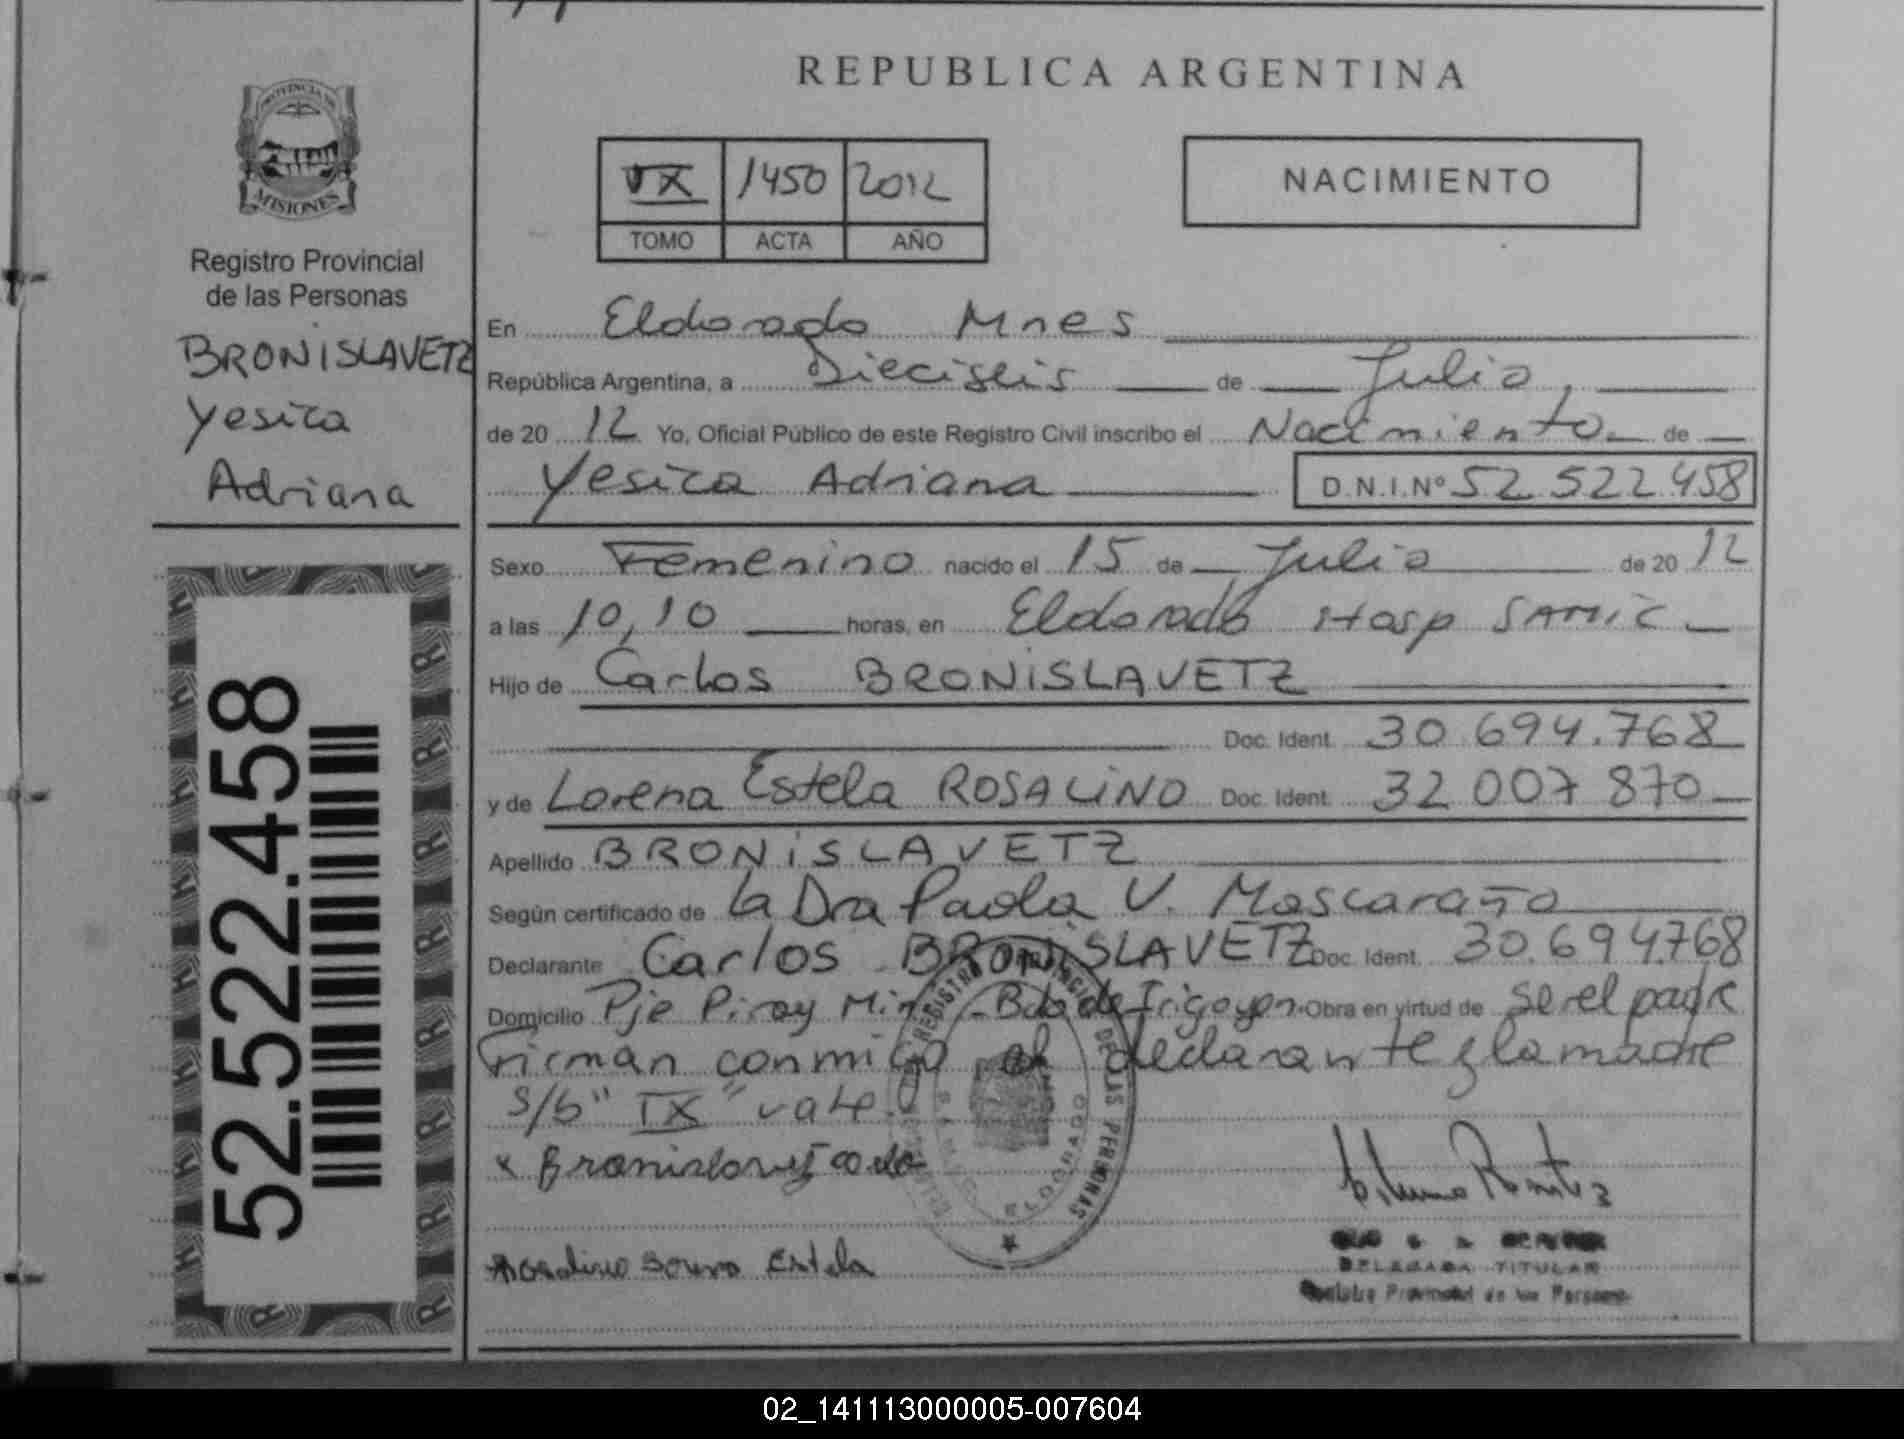 REPUBLICA ARGENTINA
PROVINCIA DE
MISIONES
Registro Provincial
de las Personas
BRONISLAVETZ
Yesica
Adriana
52.522.458
IX 1450 2012
TOMO ACTA AÑO
NACIMIENTO
En Eldorado Mnes
República Argentina, a Dieciseis de Julio
de 20 12 Yo, Oficial Público de este Registro Civil inscribo el Nacimiento de
Yesica Adriana D.N.I.Nº 52 522 458
Sexo Femenino nacido el 15 de Julio de 20 12
a las 10,10 horas, en Eldorado Hosp SAMIC
Hijo de Carlos BRONISLAVETZ
Doc. Ident. 30.694.768
y de Lorena Estela ROSALINO Doc. Ident. 32 007 870
Apellido BRONISLAVETZ
Según certificado de la Dra Paola V. Mascaraño
Declarante Carlos BRONISLAVETZ Doc. Ident. 30.694.768
Domicilio Pje Piray Mini - Bdo de Irigoyen. Obra en virtud de ser el padre
Firman conmigo el declarante y la madre
S/b "IX" vale.
REGISTRO PROVINCIAL DE LAS PERSONAS
ELDORADO
x Bronislavetz
Rosalino Estela
DELEGADA TITULAR
Registro Provincial de las Personas
02_141113000005-007604